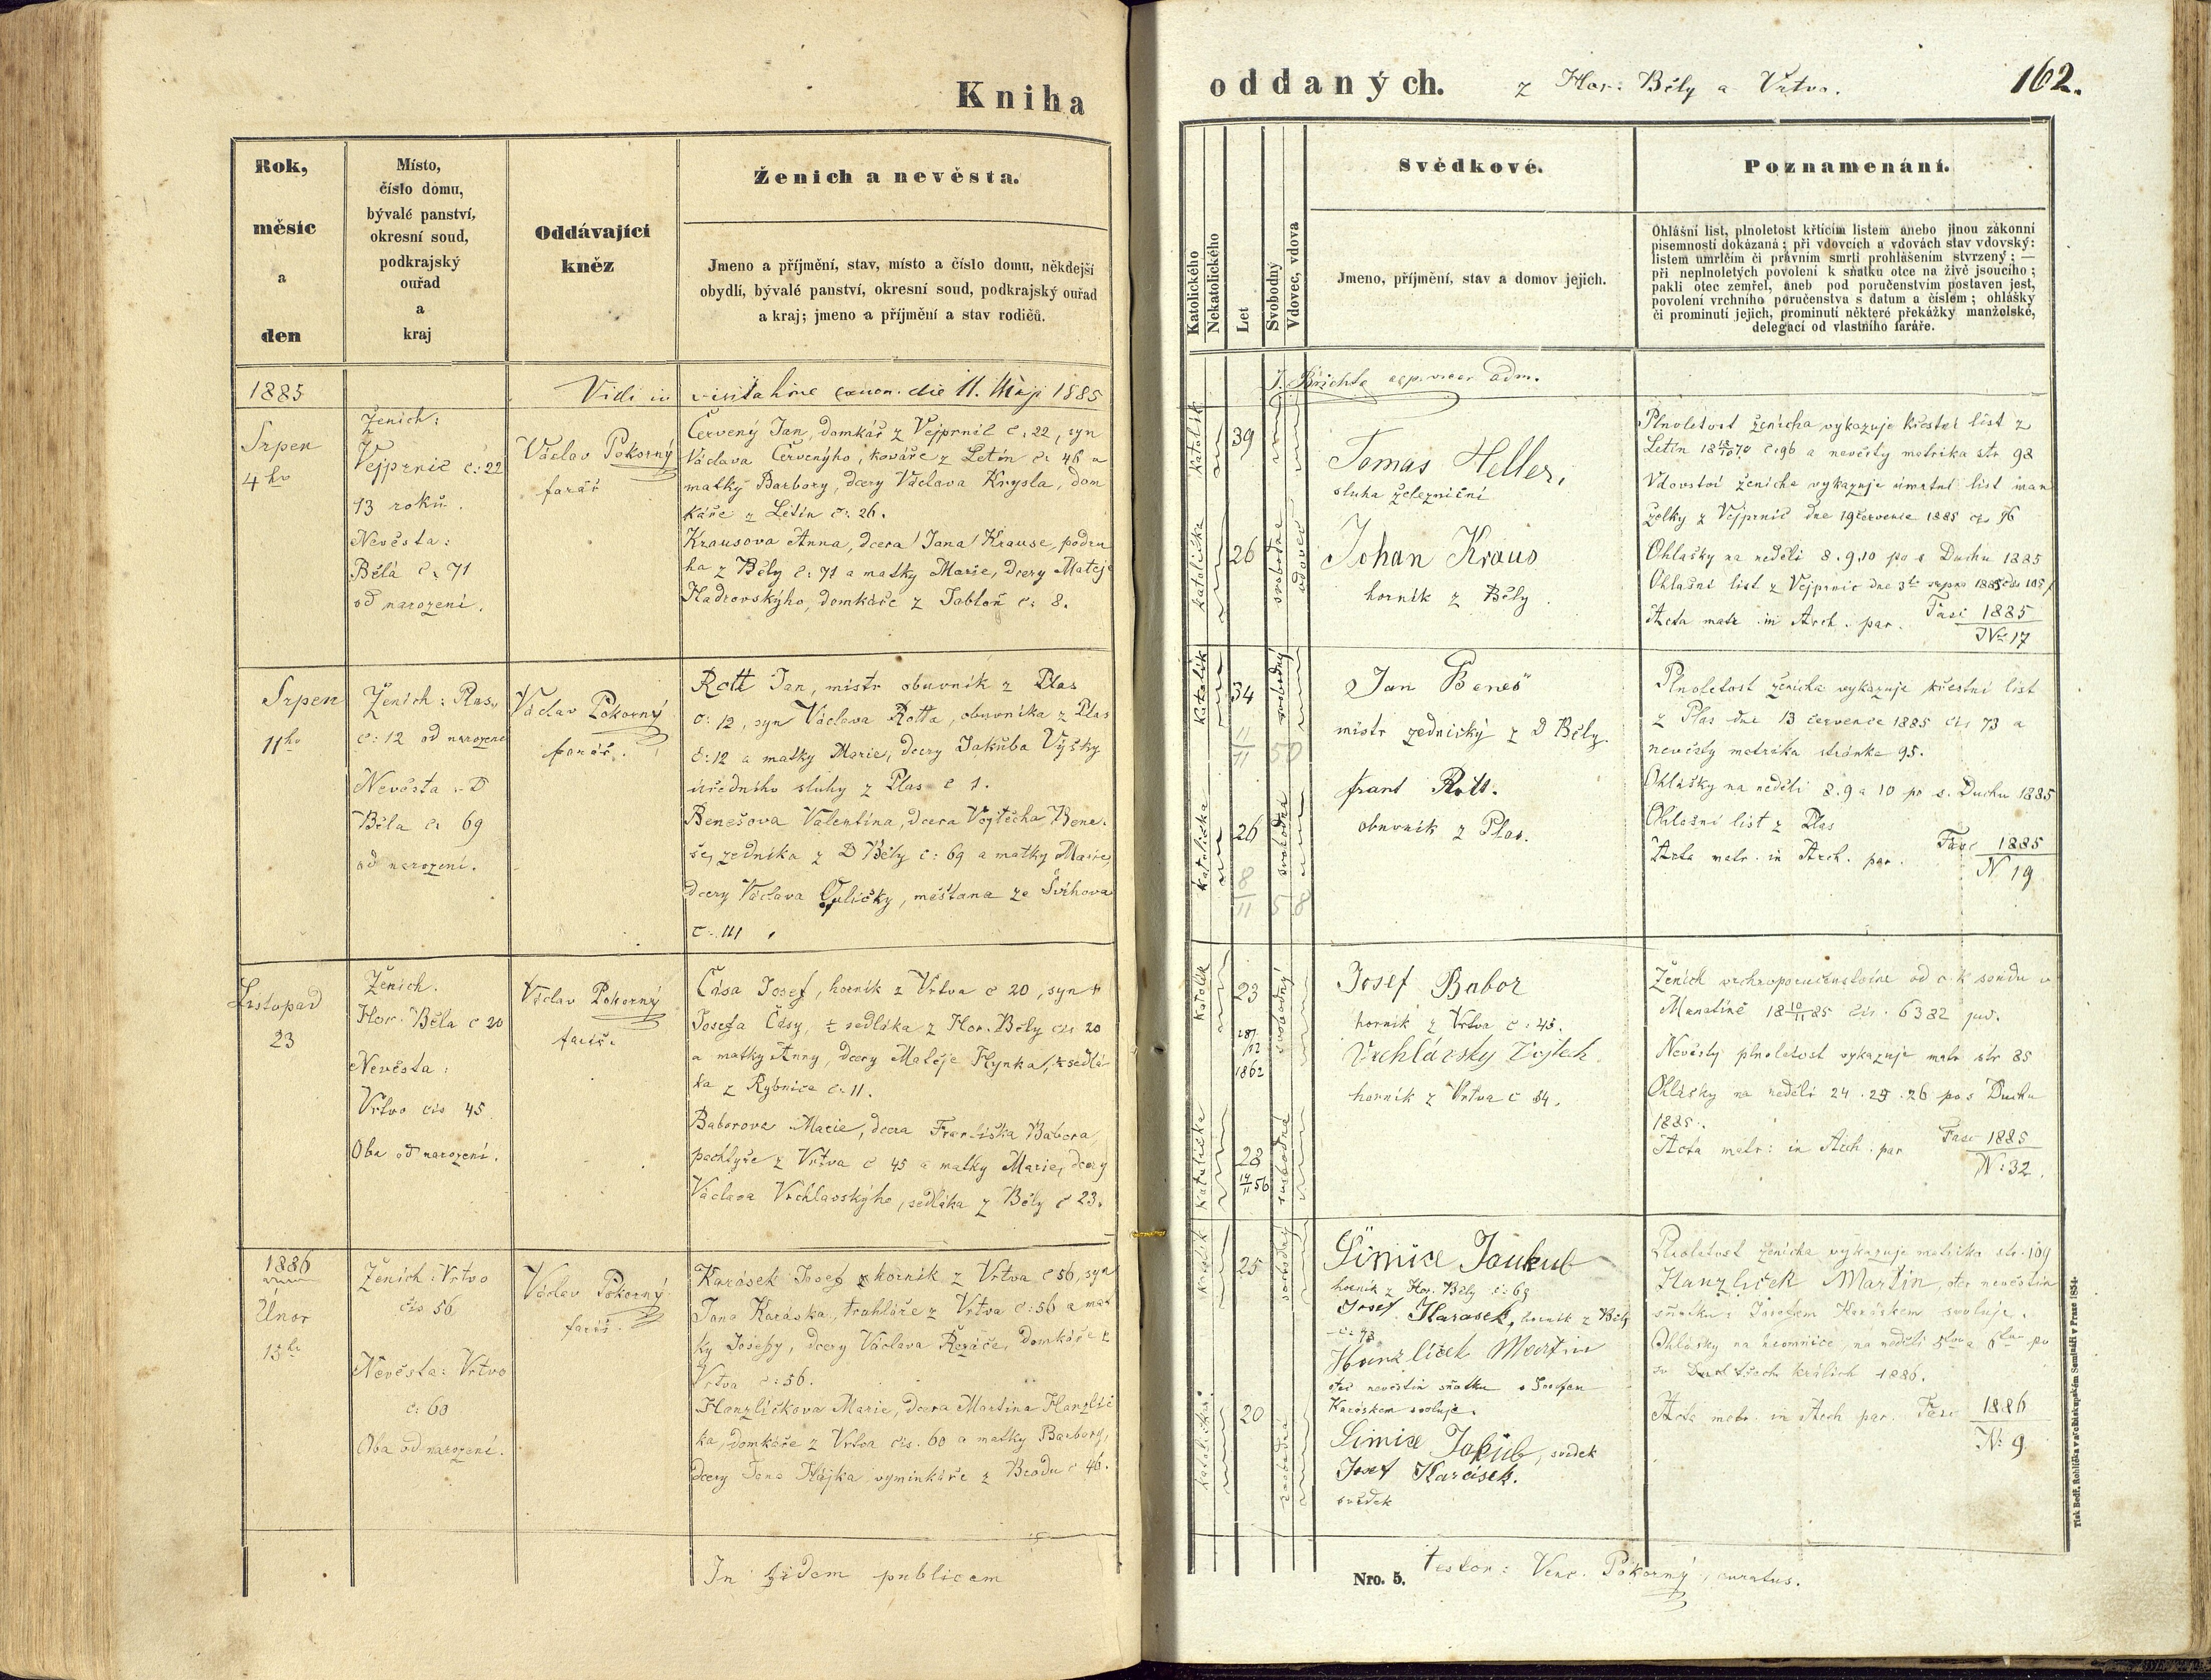 Kniha
Rok,
měsíc
a
den
Místo,
číslo domu,
bývalé panství,
okresní soud,
podkrajský
ouřad
a
kraj
Oddávající
kněz
Ženich a nevěsta.
Jmeno a příjmění, stav, místo a číslo domu, někdejší
obydlí, bývalé panství, okresní soud, podkrajský ouřad
a kraj; jmeno a příjmění a stav rodičů.
1885
Vidi in visitatione canon. die 11. Maji 1885
Srpen
4ho
Ženich:
z
Vejprnic č: 22
13 roků.
Nevěsta:
Bělá č: 71
od narození.
Václav Pokorný
farář
Červený Jan, domkář z Vejprnic č: 22, syn
Václava Červenýho, kováře z Letin č: 46 a
matky Barbory, dcery Václava Krysla, dom
káře z Letin č: 26.
Krausova Anna, dcera Jana Krause, podru
ha z Běly č: 71 a matky Marie, dcery Matěje
Hadrovskýho, domkáře z Jabloň č: 8.
Srpen
11ho
Ženich: Plasy
č: 12 od narození
Nevěsta: D
Běla č: 69
od narození.
Václav Pokorný
farář.
Rott Jan, mistr obuvník z Plas
č: 12, syn Václava Rotta, obuvníka z Plas
č: 12 a matky Marie, dcery Jakuba Vyšky
úředního sluhy z Plas č 1.
Benešova Valentina, dcera Vojtěcha Bene-
še, zedníka z D Běly č: 69 a matky Marie,
dcery Václava Culičky, měšťana ze Švihova
č: 111.
Listopad
23
Ženich.
Hor. Běla č 20
Nevěsta:
Vrtvo čis 45
Oba od narození.
Václav Pokorný
farář.
Čása Josef, horník z Vrtva č 20, syn †
Josefa Čásy, sedláka z Hor. Běly čis 20
a matky Anny, dcery Matěje Hynka, sedlá
ka z Rybnice č: 11.
Baborova Marie, dcera Františka Babora,
pachtýře z Vrtva č 45 a matky Marie, dcery
Václava Vrchlavskýho, sedláka z Běly č 23.
1886
Únor
15ho
Ženich: Vrtvo
čis 56.
Nevěsta: Vrtvo
č: 60
Oba od narození.
Václav Pokorný
farář.
Karásek Josef, horník z Vrtva č 56, syn
Jana Karáska, truhláře z Vrtva č: 56 a mat
ky Josefy, dcery Václava Řezáče, domkáře z
Vrtva č: 56.
Hanzlíčkova Marie, dcera Martina Hanzlíč
ka, domkáře z Vrtva čis. 60 a matky Barbory,
dcery Jana Hájka výminkáře z Brodu č 46.
In fidem publicam
oddaných.
z Hor: Běly a Vrtva.
162.
Katolického
Nekatolického
Let
Svobodný
Vdovec, vdova
Svědkové.
Jmeno, příjmění, stav a domov jejich.
Poznamenání.
Ohlášní list, plnoletost křtícím listem anebo jinou zákonní
písemností dokázaná; při vdovcích a vdovách stav vdovský:
listem umrlčím či právním smrti prohlášením stvrzený; —
při neplnoletých povolení k sňatku otce na živě jsoucího;
pakli otec zemřel, aneb pod poručenstvím postaven jest,
povolení vrchního poručenstva s datum a číslem; ohlášky
či prominutí jejich, prominutí některé překážky manželské,
delegací od vlastního faráře.
katolík
39
katolička
26
svobodna
vdovec
Tomas Heller,
sluha železniční
Johan Kraus
horník z Běly
Plnoletost ženicha vykazuje křestní list z
Letin č 96 a nevěsty matrika str 98
Vdovství ženicha vykazuje úmrtní list man
želky z Vejprnic dne 19 července 1885 čis 96
Ohlašky na neděli 8. 9. 10 po s Duchu 1885
Ohlašní list z Vejprnic dne 3ho srpna 1885 čis 105
Acta matr. in Arch. par. Fasc 1885
No: 17
katolík
34
11
11
50
svobodný
katolička
26
8
11
58
svobodna
Jan Beneš
mistr zednický z D Běly.
frant Rott.
obuvník z Plas.
Plnoletost ženicha vykazuje křestní list
z Plas dne 13 července 1885 čis 73 a
nevěsty matrika stránka 95.
Ohlášky na neděli 8. 9 a 10 po s. Duchu 1885
Ohlašní list z Plas
Acta matr. in Arch. par. Fasc 1885
N. 19
katolík
23
1862
svobodný
katolička
28
14
11 56
svobodná
Josef Babor
horník z Vrtva č: 45.
Vrchlávsky Vojtech
horník z Vrtva č 54.
Ženich vrchnoporučenstvíne od c. k soudu v
Manetíně 18 10/11 85 čis. 6382 jud.
Nevěsty plnoletost vykazuje matr str 85
Ohlášky na neděli 24. 25. 26 po s Duchu
1885.
Acta matr: in Arch. par Fasc 1885
N: 32.
katolík
25
svobodný
katolička
20
svobodna
Šimice Jaukub
horník z Hor. Běly č: 69
Josef Karasek, horník z Běly
Hanzlíček Martin
otec nevěstin sňatku s Josefem
Karáskem svoluje.
Šimice Jakub, svědek
Josef Karásek.
svědek
Plnoletost ženicha vykazuje matrika str. 109
Hanzlíček Martin, otec nevěstin
sňatku s Josefem Karáskem svoluje.
Ohlášky na hromnice, na neděli 5tou a 6tou po
sv třech králích 1886.
Acta matr. in Arch par. Fasc 1886
N: 9
Nro. 5.
testor: Venc. Pokorný, curatus.
Tisk Bedř. Rohlíčka v arcibiskupském Semináři v Praze 1854.